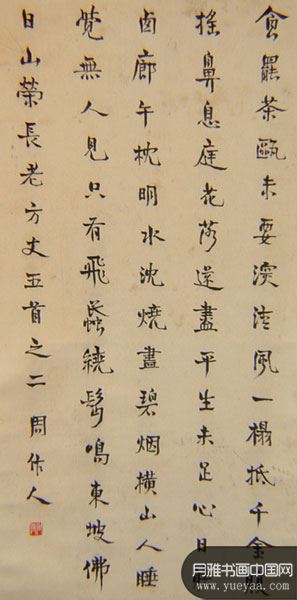 食罷茶甌未要深清風一榻抵千金腹
搖鼻息庭花落還盡平生未足心日
西廊午枕明水沈燒盡碧烟橫山人睡
覺無人見只有飛蚊繞鬢鳴東坡佛
日山榮長老方丈五首之二 周作人
月雅书画中国网
www.yueyaa.com